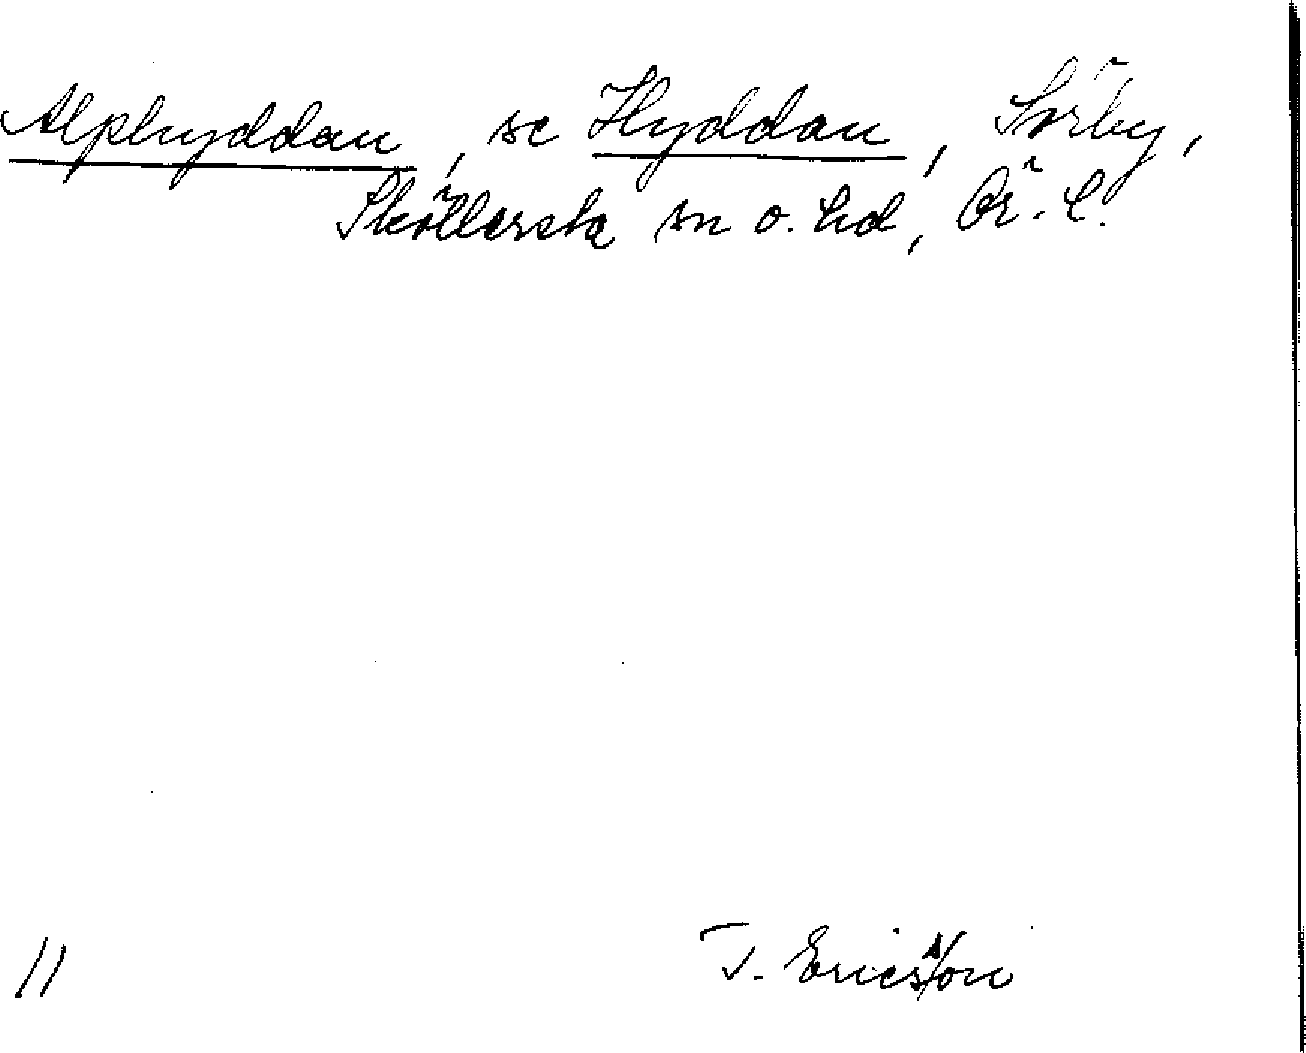 Alphyddan, se Hyddan, Sörby,
Sköllersta sn o. hd, Ör. l.
11
T. Ericsson